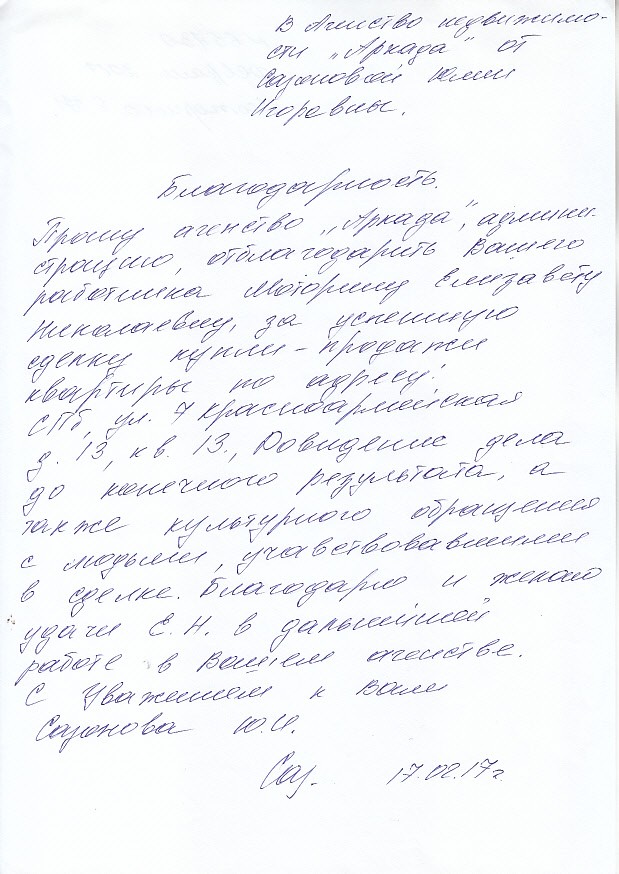 В Агенство недвижимо-
сти „Аркада" от
Сазоновой Юлии
Игоревны.
Благодарность.
Прошу агенство „Аркада", админи-
страцию, отблагодарить Вашего
работника Моторину Елизавету
Николаевну, за успешную
сделку купли-продажи
квартиры по адресу:
СПб, ул. 7 Красноармейская
д. 13, кв. 13., Ровидение дела
до конечного результата, а
также культурного обращения
с людьми, учавствовавшими
в сделке. Благодарю и желаю
удачи Е.Н. в дальнейшей
работе в Вашем агенстве.
С Уважением к Вам
Сазонова Ю.И.
Саз. 17.02.17г.